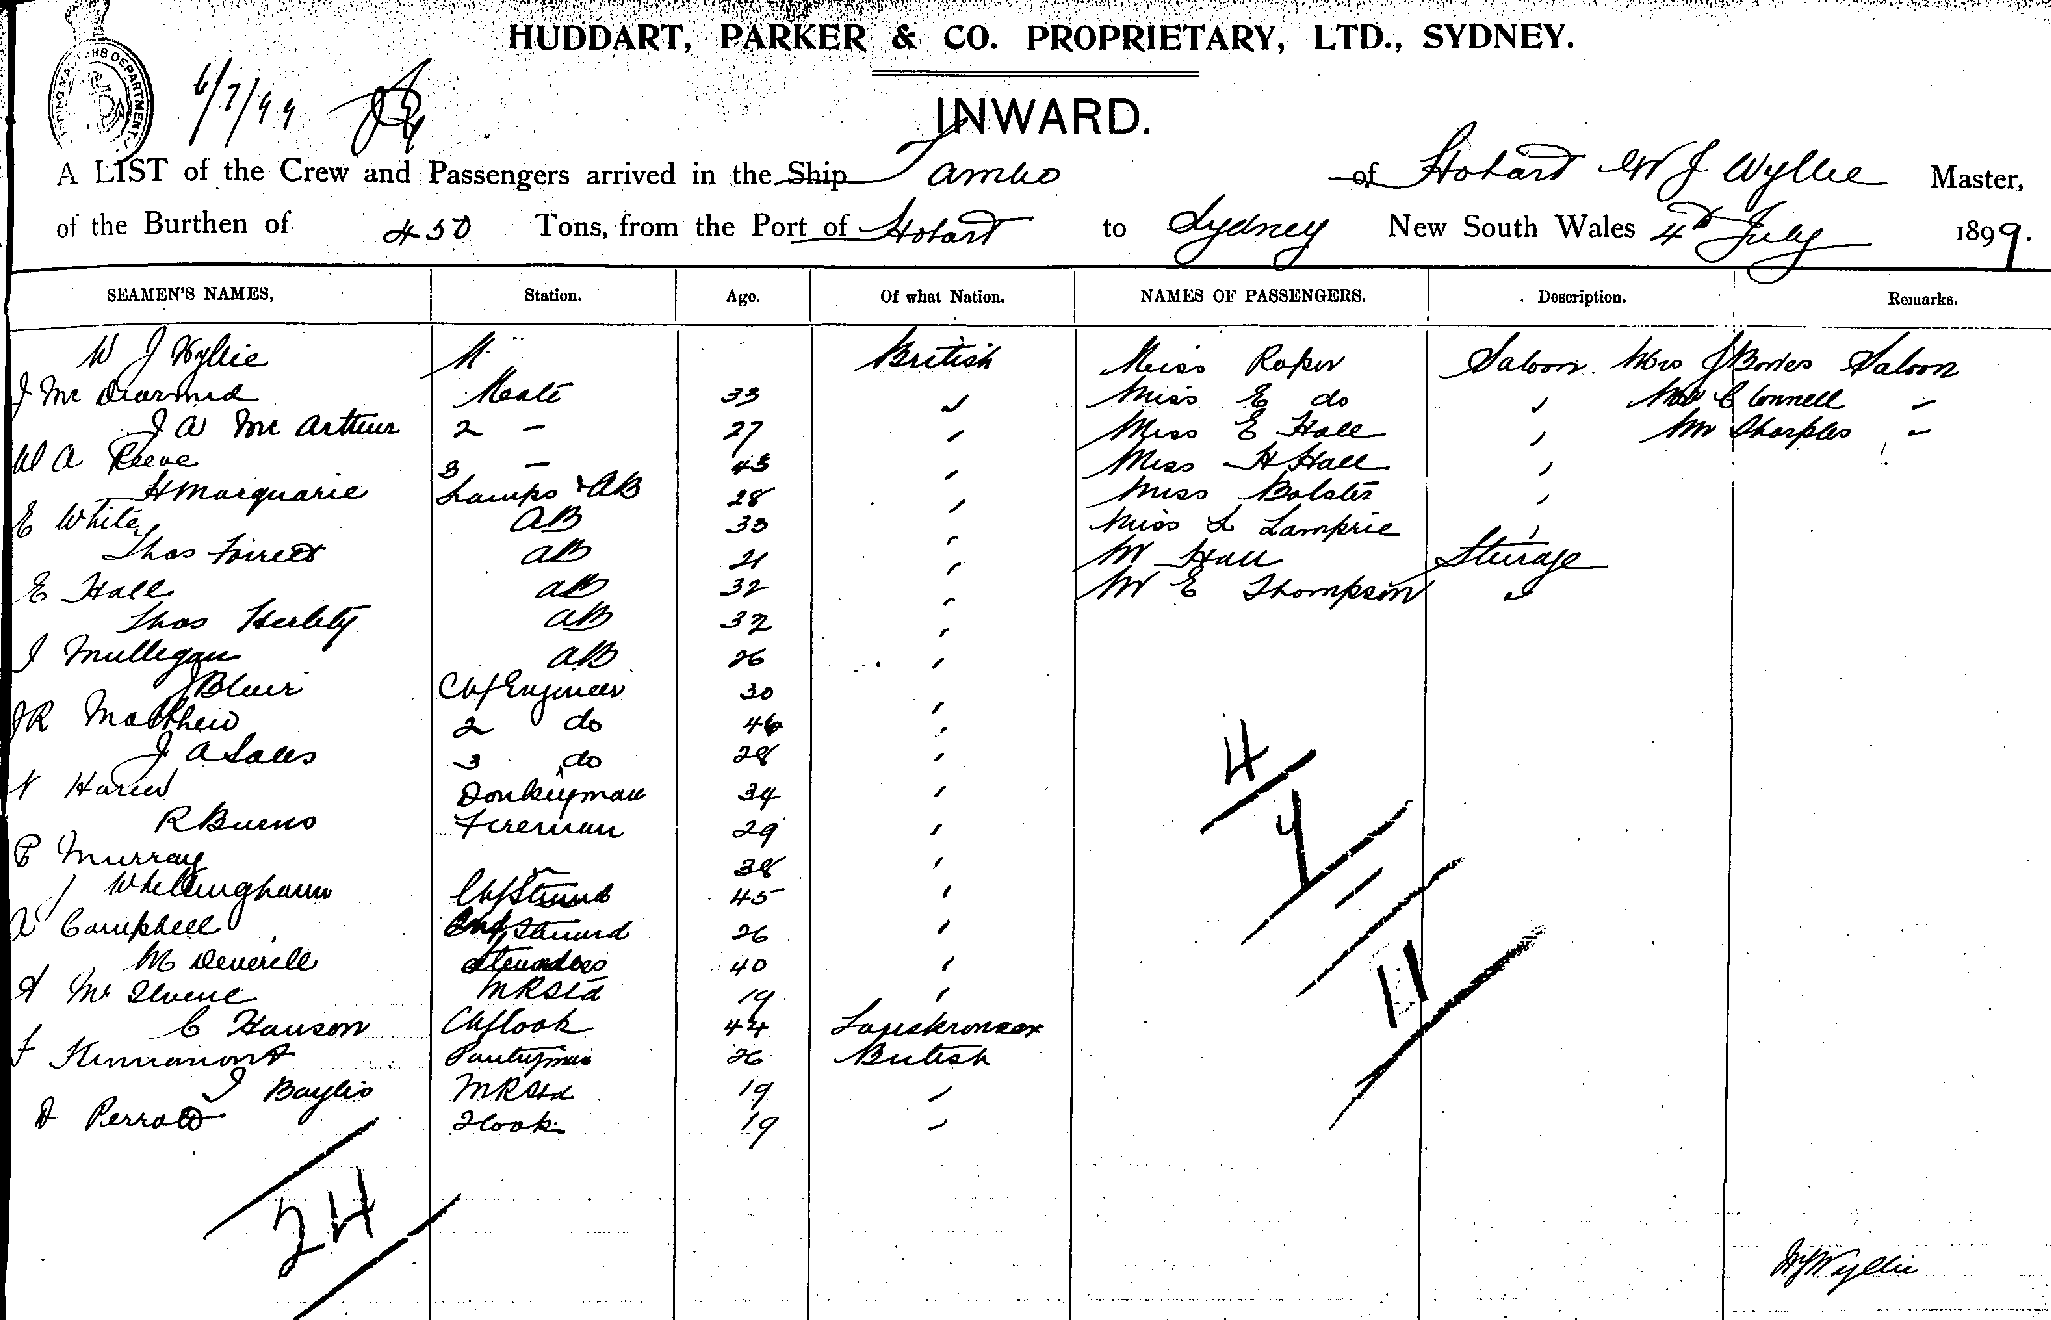 HUDDART, PARKER & CO. PROPRIETARY, LTD., SYDNEY.
6/7/99
INWARD.
A LIST of the Crew and Passengers arrived in the Ship Tambo of Hobart W J Wyllie Master,
of the Burthen of 450 Tons, from the Port of Hobart to Sydney New South Wales 4th July 1899.
SEAMEN'S NAMES, Station. Age. Of what Nation. NAMES OF PASSENGERS. Description. Remarks.
W J Wyllie M British Miss Roper Saloon Mrs J Saloon
J Mc Diarmid Mate 33 " Miss E do " C Connell "
J A Mc Arthur 2 - 27 " Miss E Hall " Mr Sharples "
W A Reeve 3 - 43 " Miss H Hall "
H Marquarie Lamps & AB 28 " Miss Bolster "
E White AB 33 " Miss L Lamprie "
Thos AB 21 " Mr Hall Sturage
E Hall AB 32 " Mr E Thompson "
Thos AB 32 "
J Mulligan AB 26 "
J Blair Chf Engineer 30 "
J R Matthew 2 do 46 "
J A Sales 3 do 28 "
Donkeyman 34 "
R Burns Fireman 29 "
P Murray " 38 "
J Whillingham Chf Steward 45 "
A Campbell Steward 26 "
M Deverell Stewardess 40 "
A Mc MRStd 19 "
C Hanson Chf Cook 44
F Pantryman 26 British
J Baylis MRStd 19 "
D Perrott 2 Cook 19 "
4
4
11
24
W J Wyllie